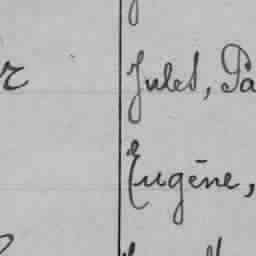 Jules, Pa
Eugène,